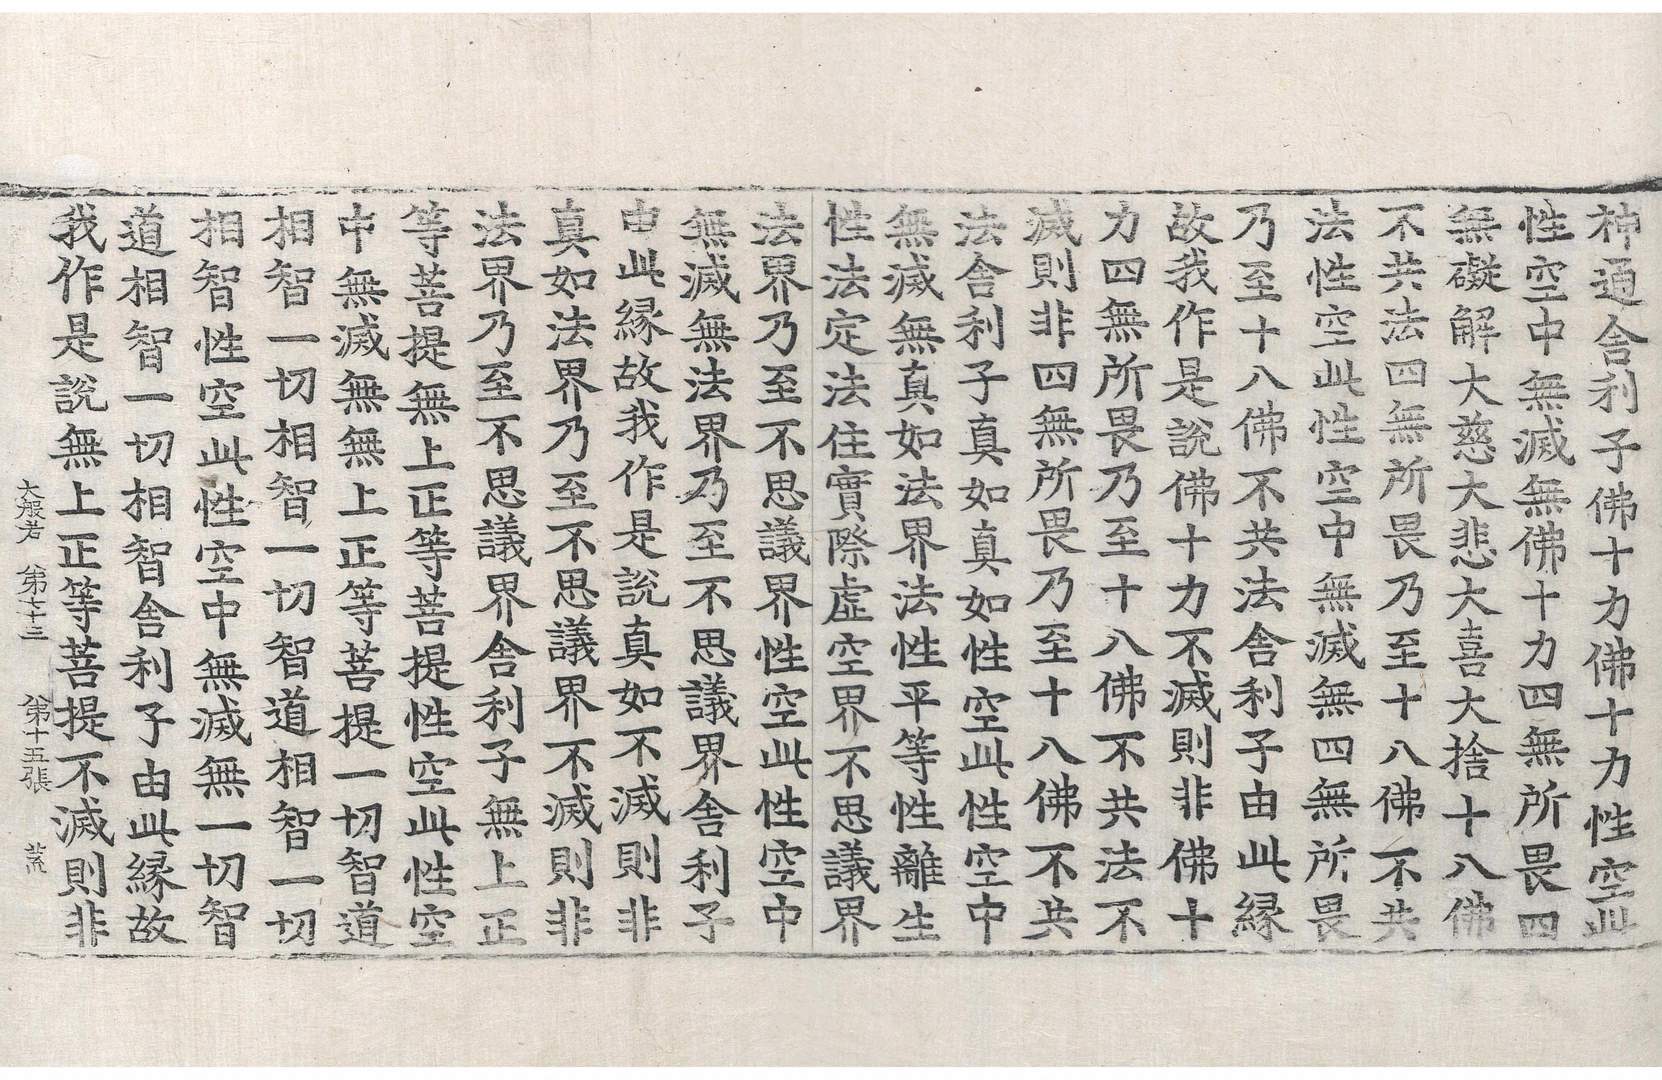 神通舍利子佛十力佛十力性空此
性空中無滅無佛十力四無所畏四
無礙解大慈大悲大喜大捨十八佛
不共法四無所畏乃至十八佛不共
法性空此性空中無滅無四無所畏
乃至十八佛不共法舍利子由此緣
故我作是說佛十力不滅則非佛十
力四無所畏乃至十八佛不共法不
滅則非四無所畏乃至十八佛不共
法舍利子真如真如性空此性空中
無滅無真如法界法性平等性離生
性法定法住實際虛空界不思議界
法界乃至不思議界性空此性空中
無滅無法界乃至不思議界舍利子
由此緣故我作是說真如不滅則非
真如法界乃至不思議界不滅則非
法界乃至不思議界舍利子無上正
等菩提無上正等菩提性空此性空
中無滅無無上正等菩提一切智道
相智一切相智一切智道相智一切
相智性空此性空中無滅無一切智
道相智一切相智舍利子由此緣故
我作是說無上正等菩提不滅則非
大般若 第七十三 第十五張 荒